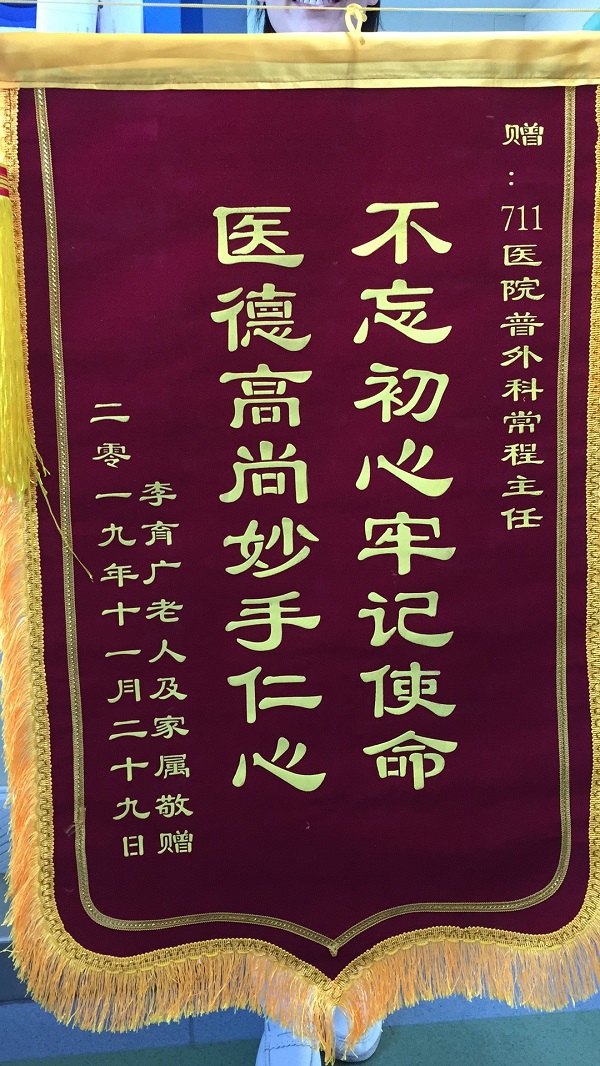 赠：711医院普外科常程主任
不忘初心牢记使命
医德高尚妙手仁心
李育广老人及家属敬赠
二零一九年十一月二十九日